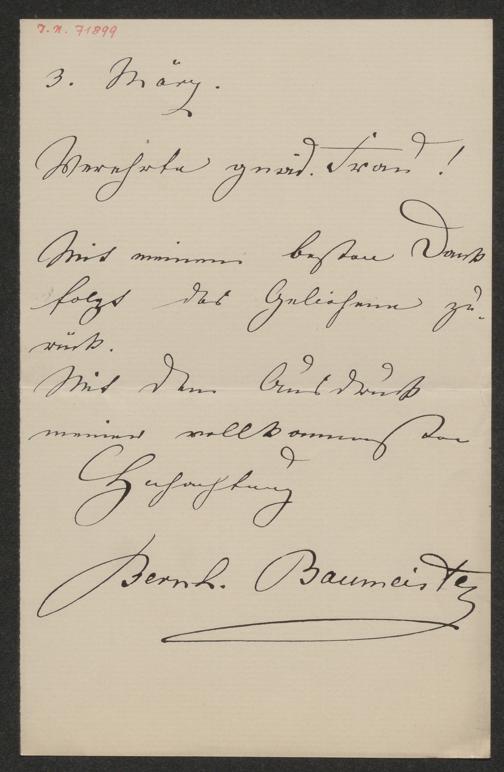 J. N. 71899
3. März.
Verehrte gnäd. Frau!
Mit meinem besten Dank
folgt das Geliehene zu-
rück.
Mit dem Ausdruck
meiner vollkommensten
Hochachtung
Bernh. Baumeister